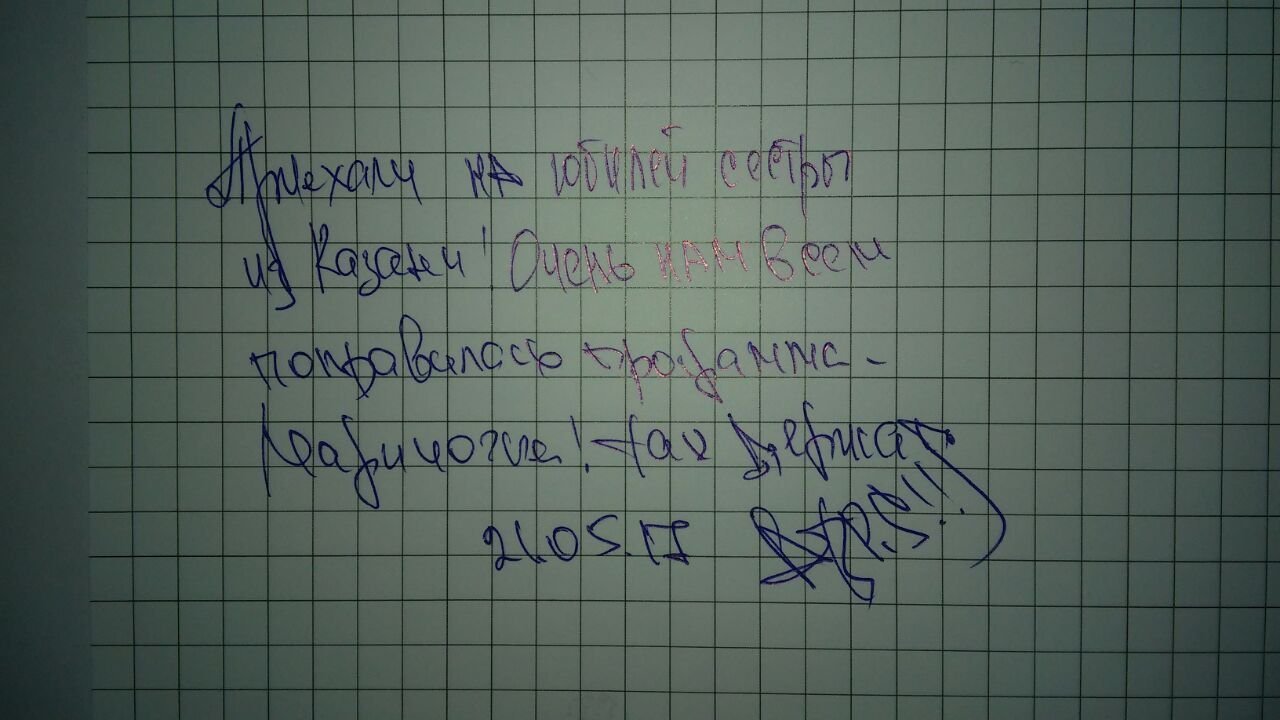 Приехали на юбилей сестры
из Казани! Очень нам всем
понравилась программа -
Мариночка! Так держать
!!!
21.05.17